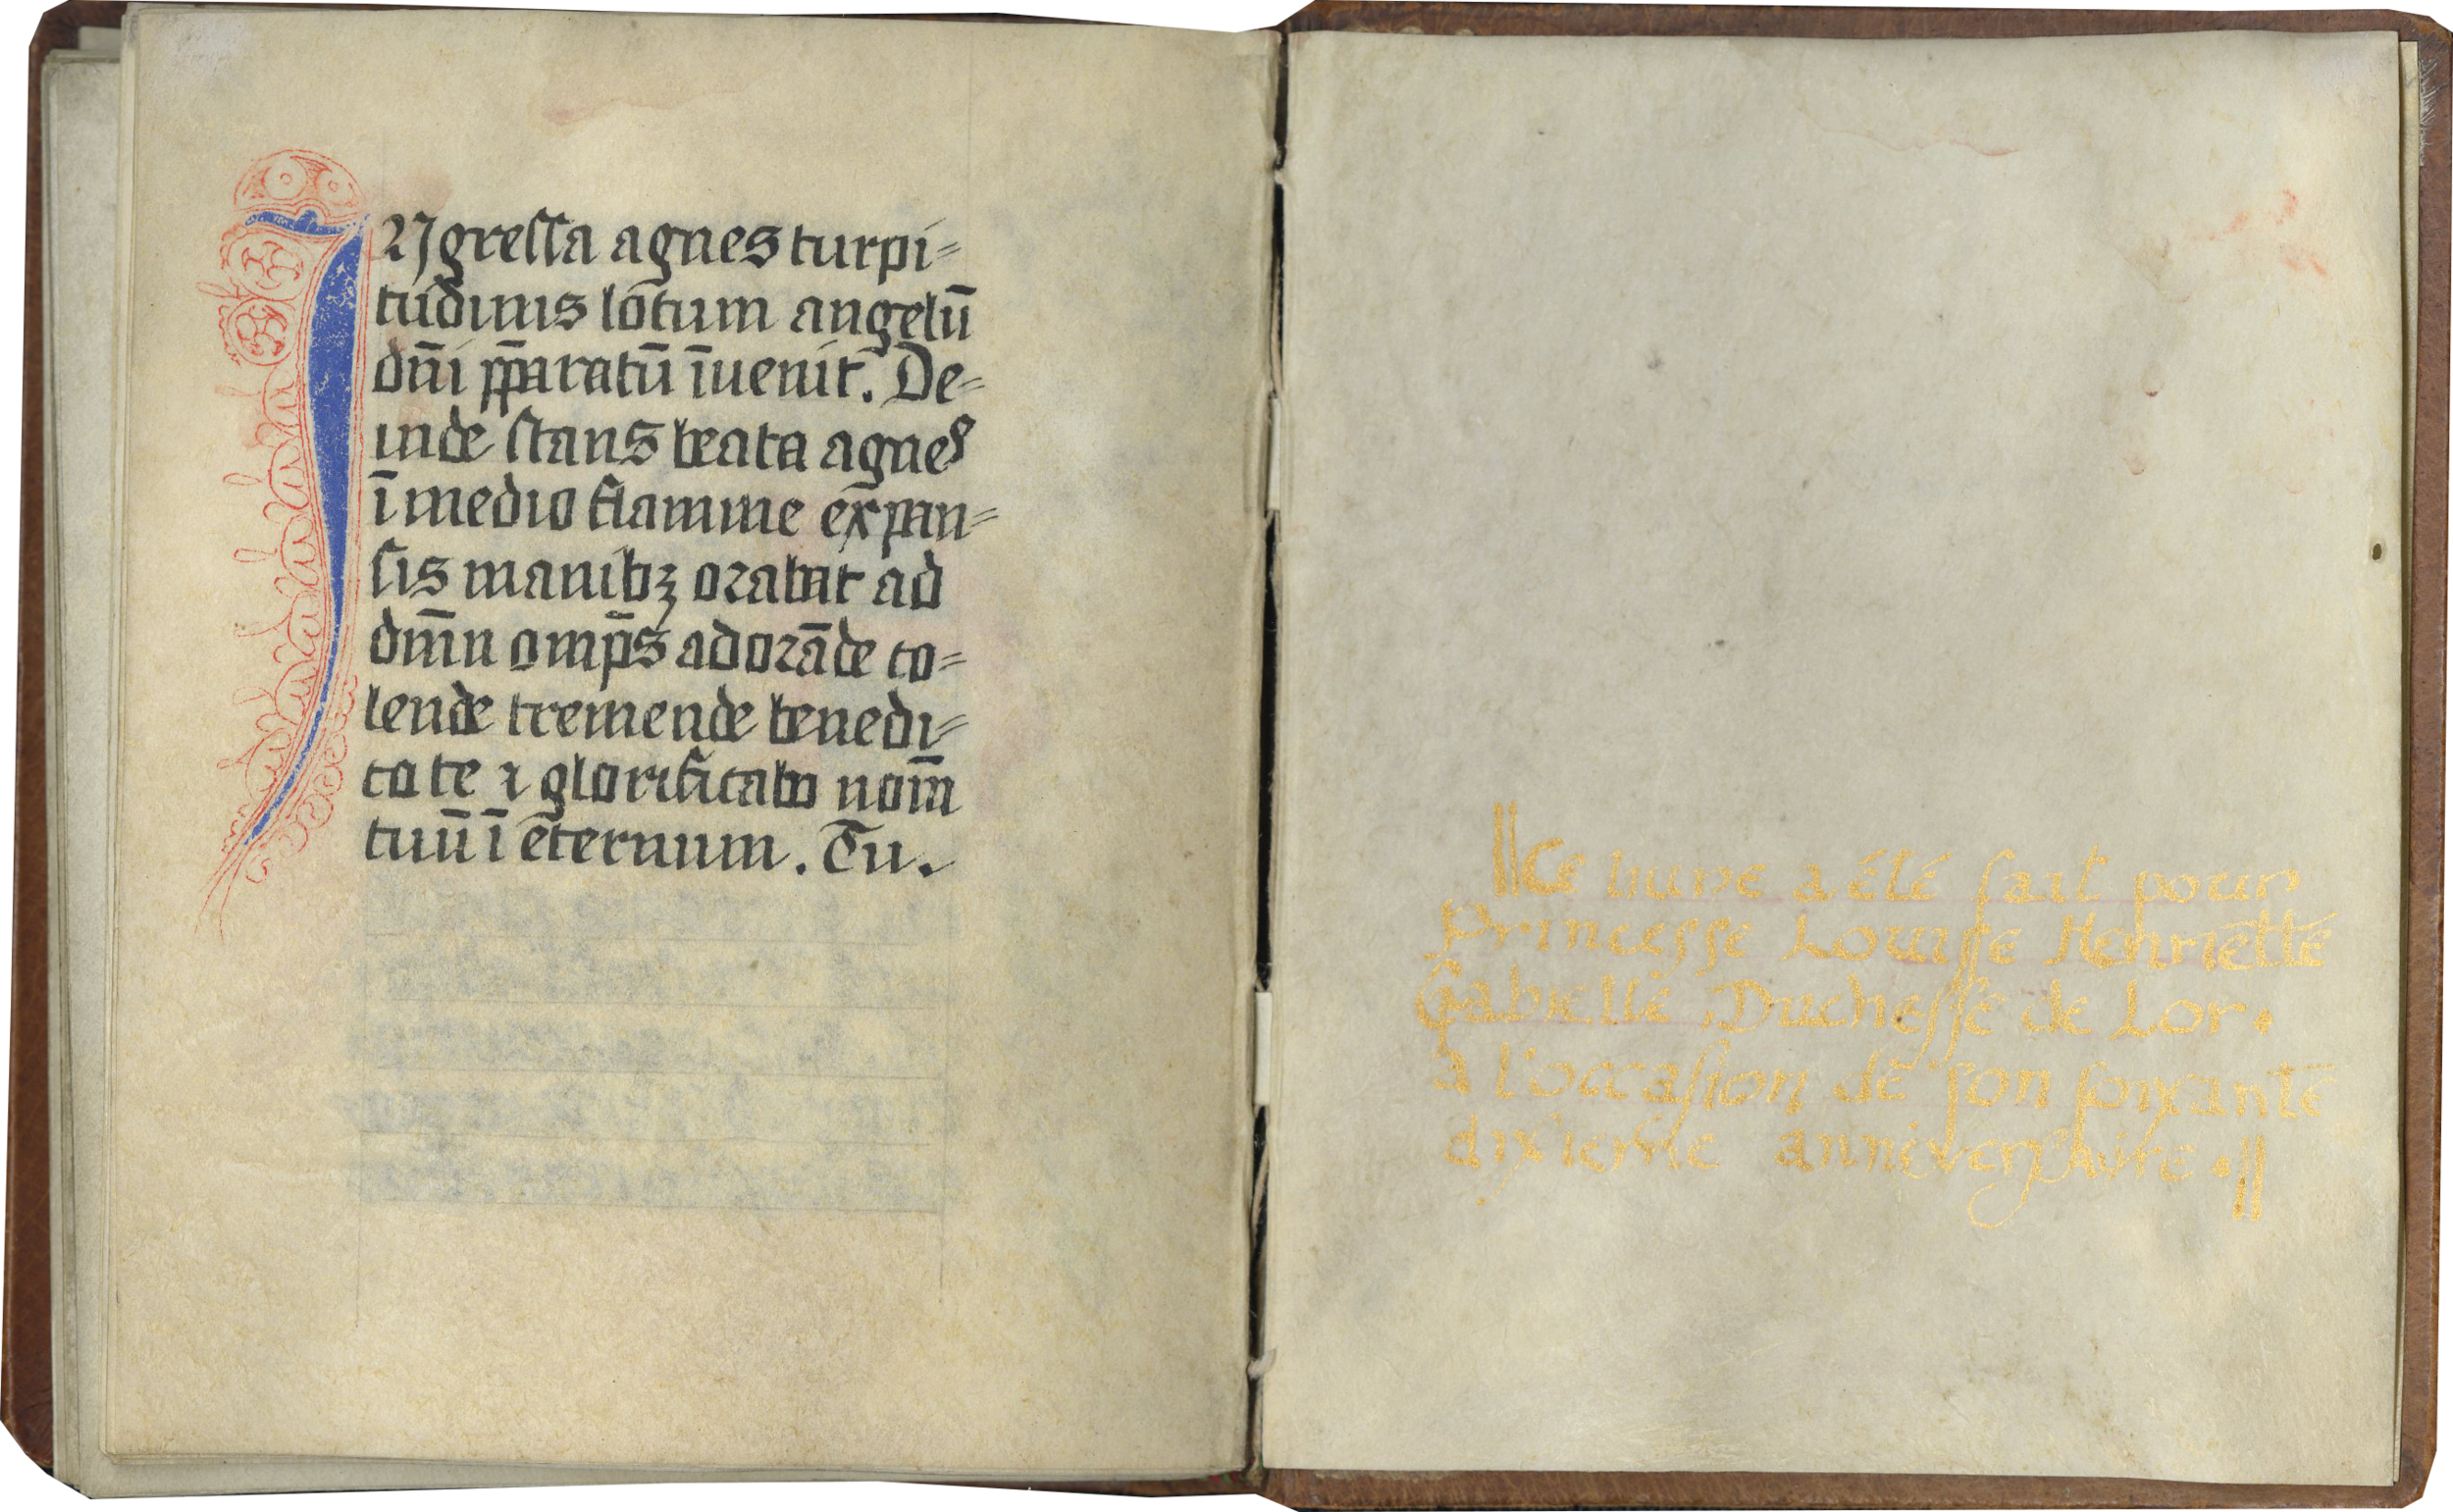 INgreſſa agnes turpi⸗
tudinis locum angelū
dn̄i p̄paratū īuenit. De⸗
inde ſtans beata agnes
ī medio flamme expan⸗
ſis manibꝫ orabat ad
dm̄n omp̄s adorāde co⸗
lende tremende benedi⸗
co te ⁊ glorificabo nom̄
tuū ī eternum. Tu.
||Ce livre a été fait pour
Princesse Louiſſe Henriette
Gabrielle Ducheſſe de Lor.
a l'occaſion de son soixante
dixieme anniversaire.||